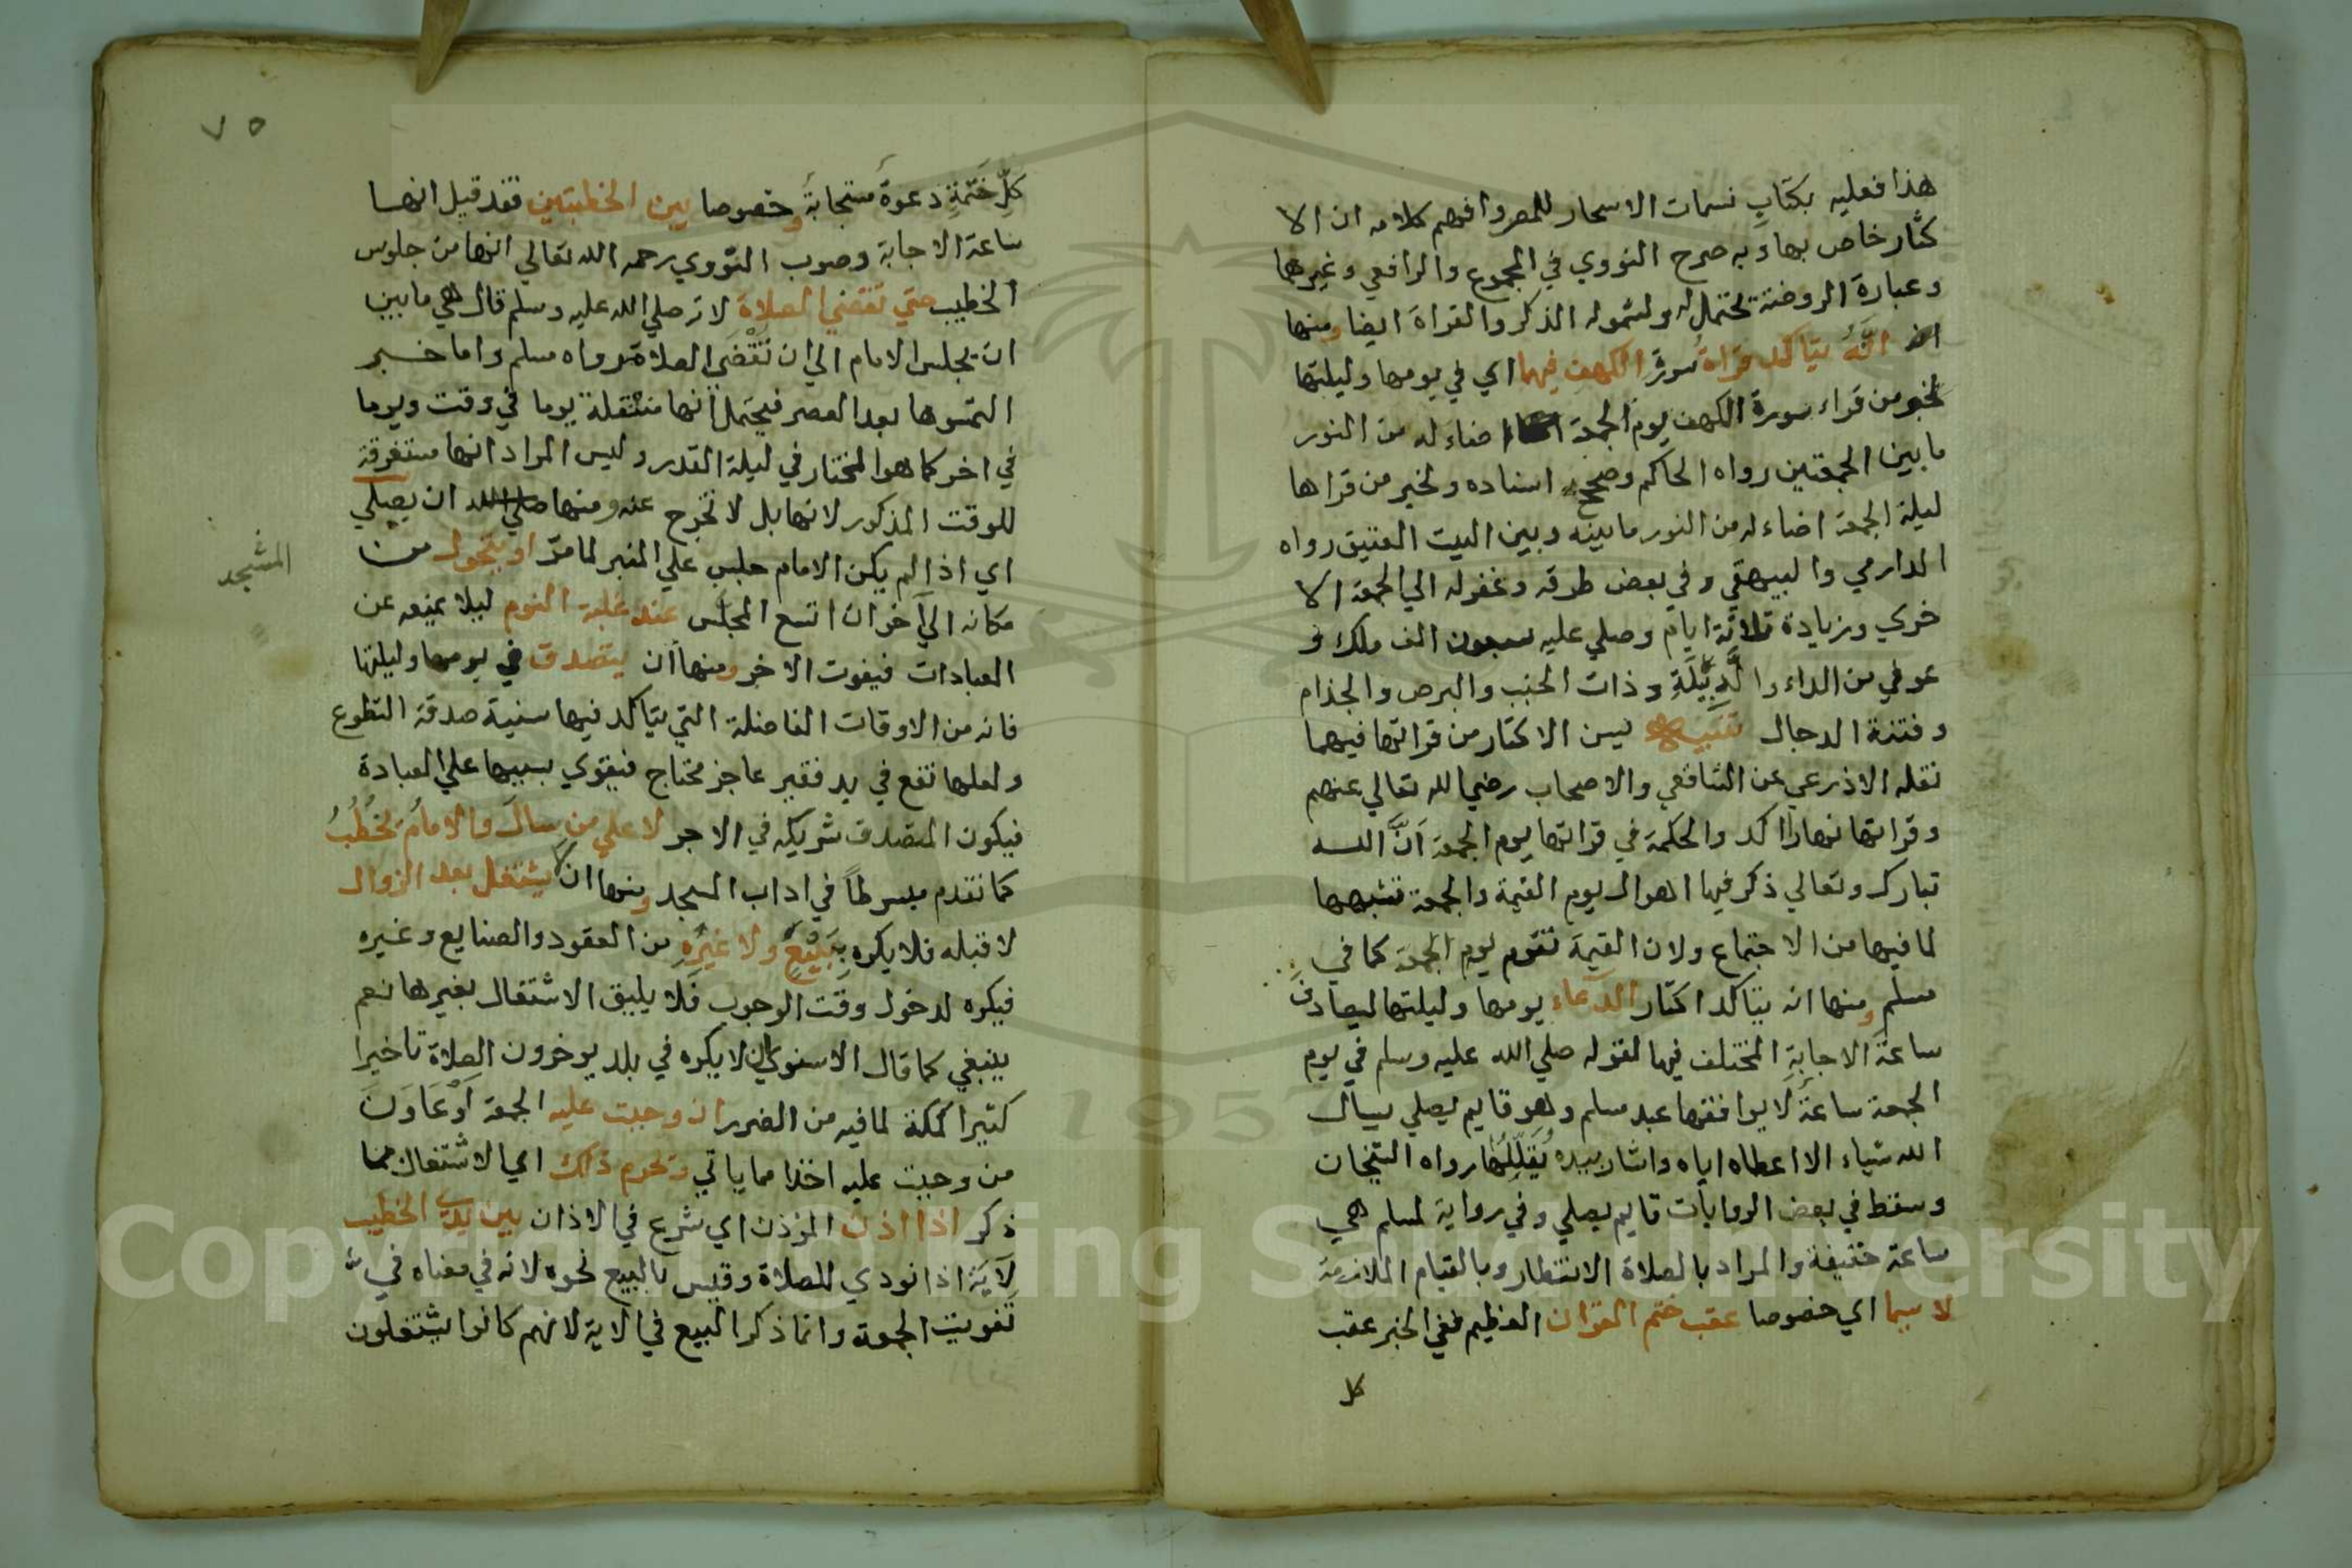 هذا فعليه بكتاب نسمات الاسحار للمص وافهم كلامه ان الا
كثار خاص بها وبه صرح النووي في المجموع والرافعي وغيرهما
وعبارة الروضة تحتمل له ولشموله الذكر والقراة ايضا ومنها
انه يتاكد قراة سورة الكهف فيهما اي في يومها وليلتها
لخبر من قراء سورة الكهف يوم الجمعة اضاء له من النور
ما بين الجمعتين رواه الحاكم وصحح اسناده ولخبر من قراها
ليلة الجمعة اضاء له من النور ما بينه وبين البيت العتيق رواه
الدارمي والبيهقي وفي بعض طرقه وغفرله الي الجمعة الا
خري وزيادة ثلاثة ايام وصلي عليه سبعون الف ملك و
عوفي من الداء والدبيلة وذات الجنب والبرص والجذام
وفتنة الدجال تنبيه يسن الاكثار من قراتها فيهما
نقله الاذرعي عن الشافعي والاصحاب رضي الله تعالي عنهم
وقراتها نهارا اكد والحكمة في قراتها يوم الجمعة انَّ الله
تبارك وتعالي ذكر فيها اهوال يوم القيمة والجمعة تشبهها
لما فيها من الاجتماع ولان القيمة تقوم يوم الجمعة كما في
مسلم ومنها انه يتاكد اكثار الدعاء يومها وليلتها ليصادف
ساعة الاجابة المختلف فيها لقوله صلي الله عليه وسلم في يوم
الجمعة ساعة لا يوافقها عبد مسلم وهو قايم يصلي يسال
الله شياء الا اعطاه اياه واشار بيده يُقَلِّلُها رواه الشيخان
وسقط في بعض الروايات قايم يصلي وفي رواية لمسلم هي
ساعة خفيفة والمراد بالصلاة الانتظار وبالقيام الملازمة
لا سيما اي خصوصا عقب ختم القران العظيم ففي الخبر عقب
كل
٧٥
كلِّ ختمةٍ دعوةٌ مستجابةٌ وخصوصا بين الخطبتين فقد قيل انها
ساعة الاجابة وصوب النووي رحمه الله تعالي انها من جلوس
الخطيب حتي تقضي الصلاة لانه صلي الله عليه وسلم قال هي ما بين
ان يجلس الامام الي ان تُقْضَي الصلاة رواه مسلم واما خبر
التمسوها بعد العصر فيحتمل انها منتقلة يوما في وقت ويوما
في اخر كما هو المختار في ليلة القدر وليس المراد انها مستغرقة
للوقت المذكور لانها بل لا تخرج عنه ومنها ان يصلي
اي اذا لم يكن الامام جلس علي المنبر لما مرّ او يتحول من
المشجد
مكانه الي اخر ان اتسع المجلس عند غلبة النوم ليلا يمنعه عن
العبادات فيفوت الاخر ومنها أن يتصدق في يومها وليلتها
فانه من الاوقات الفاضلة التي يتاكد فيها سنية صدقة التطوع
ولعلها تقع في يد فقير عاجز محتاج فيقوي بسببها علي العبادة
فيكون المتصدق شريكه في الاجر لا علي من سال والامام يخطب
كما تقدم مبسوطاً في اداب المسجد ومنها ان لا يشتغل بعد الزوال
لا قبله فلا يكره ببيع ولا غيره من العقود والصنايع وغيره
فيكره لدخول وقت الوجوب فلا يليق الاشتغال بغيرها نعم
ينبغي كما قال الاسنوي ان لا يكره في بلد يوخرون الصلاة تاخيرا
كثيرا كمكة لما فيه من الضرر ان وجبت عليه الجمعة اَوْ عَاوَنَ
من وجبت عليه اخذا مما ياتي ويحرم ذلك اي الاشتغال مما
ذكر اذا اذن الموذن اي شرع في الاذان بين يدي الخطيب
لآية اذا نودي للصلاة وقيس بالبيع نحوه لانه في معناه في
تفويت الجمعة وانما ذكر البيع في الاية لانهم كانوا يشتغلون
Copyright © King Saud University
1957